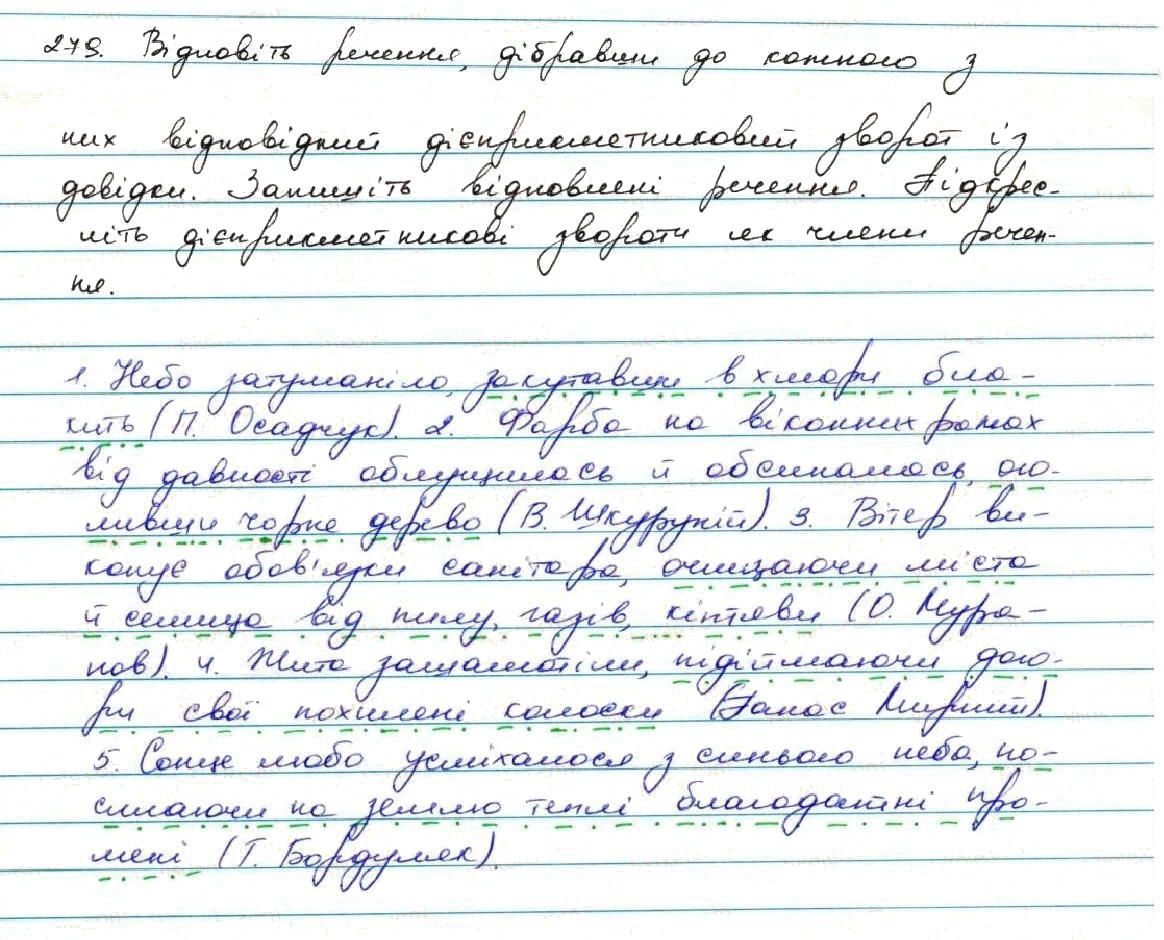 279. Відновіть речення, дібравши до кожного з
них відповідний дієприкметниковий зворот із
довідки. Запишіть відновлені речення. Підкрес-
літь дієприкметникові звороти як члени речен-
ня.
1. Небо затуманіло, закутавши в хмари бла-
кить (П. Осадчук). 2. Фарба на віконних рамах
від давності облущилась й обсипалась, ого-
ливши чорне дерево (В. Шкурупій). 3. Вітер ви-
конує обов'язки санітара, очищаючи міста
й селища від пилу, газів, кіптяви (О. Мура-
пов). 4. Жита зашамотіли, підіймаючи дого-
ри свої похилені колоски (Панас Мирний).
5. Сонце любо усміхалося з синього неба, по-
силаючи на землю теплі благодатні про-
мені (Т. Бордуляк).